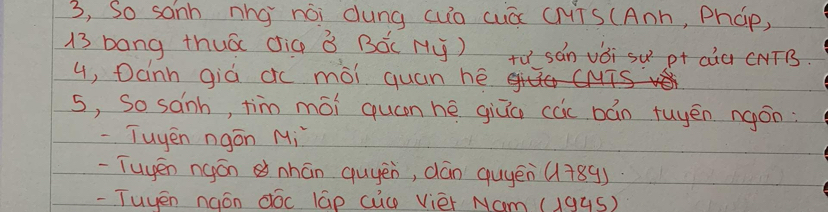 3, So sánh nhg nội dung của cuộc CMTS (Anh, Pháp,
13 bang thuộc địa ở Bắc Mỹ)
tư sản với sự pt của CNTB.
4, Đánh giá đc mối quan hệ giữa CMTS với
5, So sánh, tìm mối quan hệ giữa các bản tuyên ngôn:
- Tuyên ngôn Mĩ
- Tuyên ngôn nhân quyền, dân quyền (1789).
- Tuyên ngôn độc lập của Việt Nam (1945)